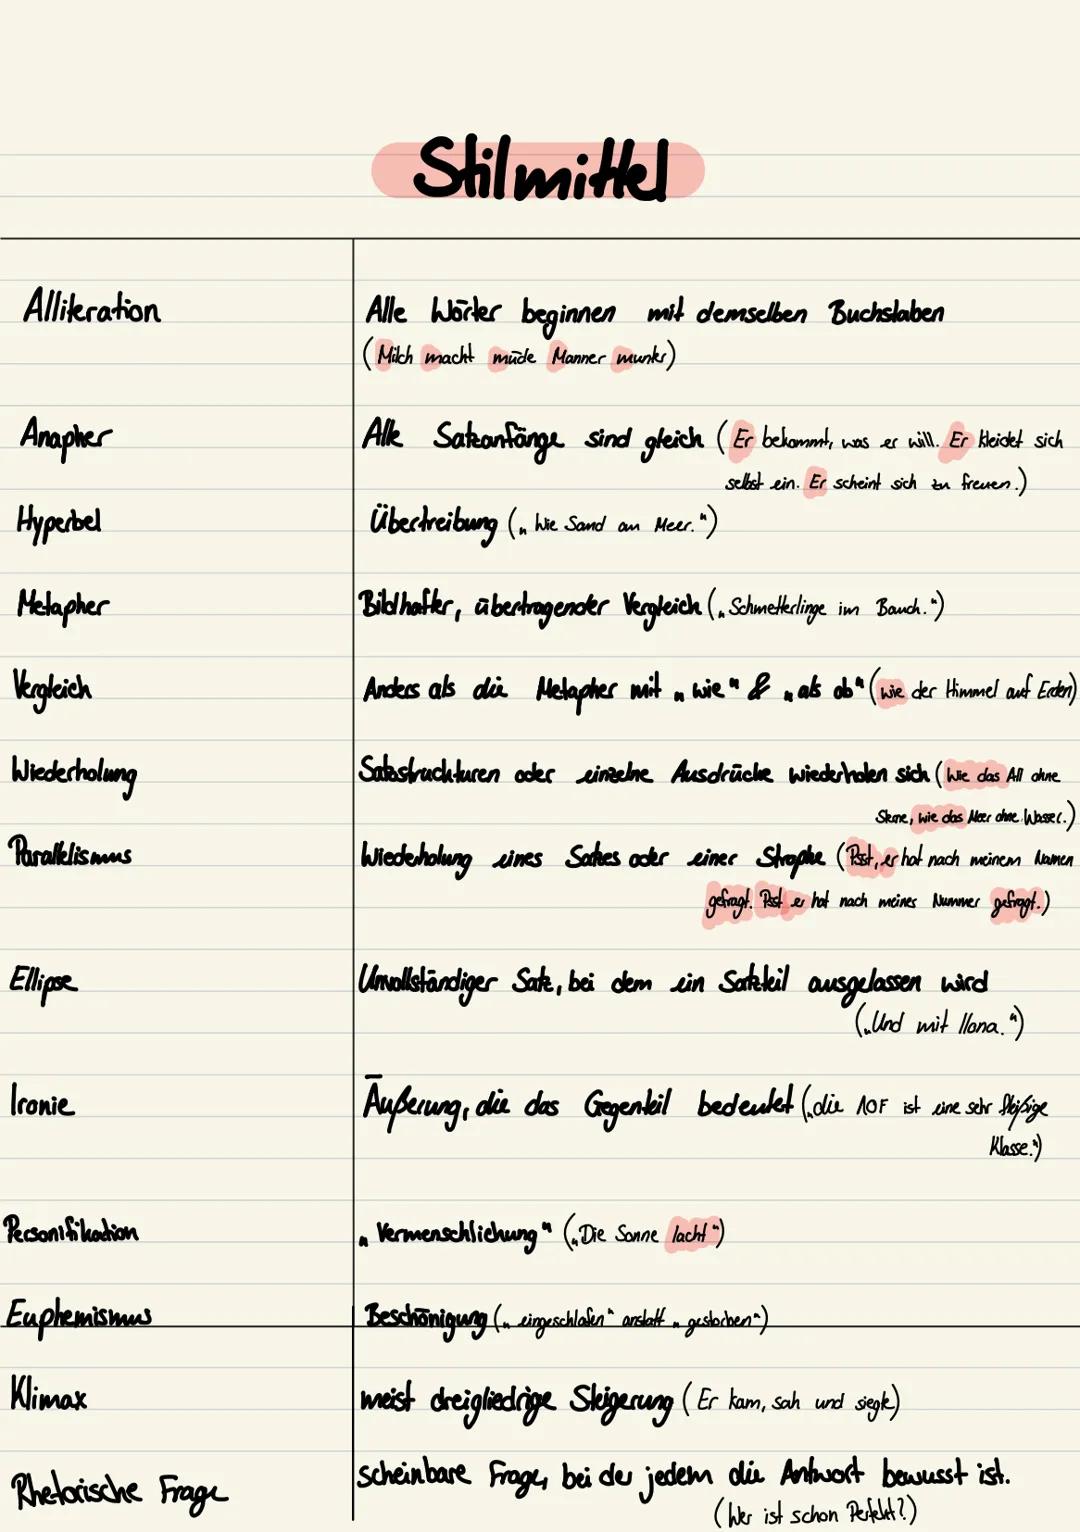 Stilmittel
Alliteration
Alle Wörter beginnen mit demselben Buchstaben
(Milch macht müde Manner munter)
Anapher
Alle Satzanfänge sind gleich (Er bekommt, was er will. Er kleidet sich
selbst ein. Er scheint sich zu freuen.)
Hyperbel
Übertreibung („Wie Sand am Meer.“)
Metapher
Bildhafter, übertragender Vergleich („Schmetterlinge im Bauch.“)
Vergleich
Anders als die Metapher mit „wie“ & „als ob“ (wie der Himmel auf Erden)
Wiederholung
Satzstruckturen oder einzelne Ausdrücke wiederholen sich (Wie das All ohne
Sterne, wie das Meer ohne Wasser.)
Parallelismus
Wiederholung eines Satzes oder einer Strophe (Psst, er hat nach meinem Namen
gefragt. Psst er hat nach meines Nummer gefragt.)
Ellipse
Unvollständiger Satz, bei dem ein Satzteil ausgelassen wird
(„Und mit Ilana.“)
Ironie
Äußerung, die das Gegenteil bedeutet („die 10F ist eine sehr fleißige
Klasse.“)
Personifikation
„Vermenschlichung“ („Die Sonne lacht“)
Euphemismus
Beschönigung („eingeschlafen“ anstatt „gestorben“)
Klimax
meist dreigliedrige Steigerung (Er kam, sah und siegte)
Rhetorische Frage
scheinbare Frage, bei der jedem die Antwort bewusst ist.
(Wer ist schon Perfekt?)